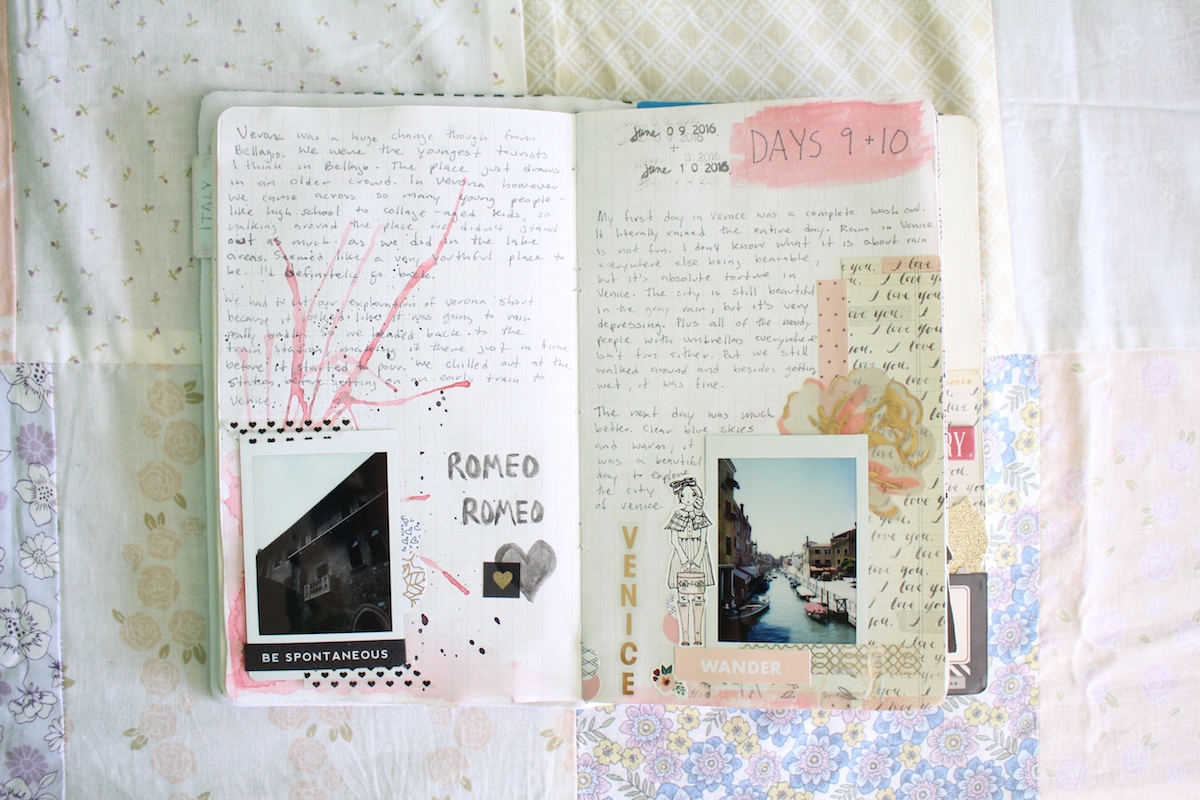 Verona was a huge change though from
Bellagio. We were the youngest tourists
I think in Bellagio. The place just draws
in an older crowd. In Verona however
we came across so many young people -
like high school to collage-aged kids, so
walking around the place we didn't stand
out as much as we did in the lake
areas. Seemed like a very youthful place to
be. I'd definitely go back.
We had to cut our exploration of Verona short
because it looked like it was going to rain
really badly so we headed back to the
train station making it there just in time
before it started to pour. We chilled out at the
station before getting on an early train to
Venice.
ITALY
ROMEO
ROMEO
BE SPONTANEOUS
June 09 2016
+
June 10 2016
DAYS 9+10
My first day in Venice was a complete wash out.
It literally rained the entire day. Rain in Venice
is not fun. I don't know what it is about rain
everywhere else being bearable,
but it's absolute torture in
Venice. The city is still beautiful
in the gray rain, but it's very
depressing. Plus all of the
people with umbrellas everywhere
isn't fun either. But we still
walked around and besides getting
wet, it was fine.
The next day was much
better. Clear blue skies
and warm, it
was a beautiful
day to explore
the city
of Venice.
VENICE
WANDER
you. I love
I love you.
I love you.
love you.
RY